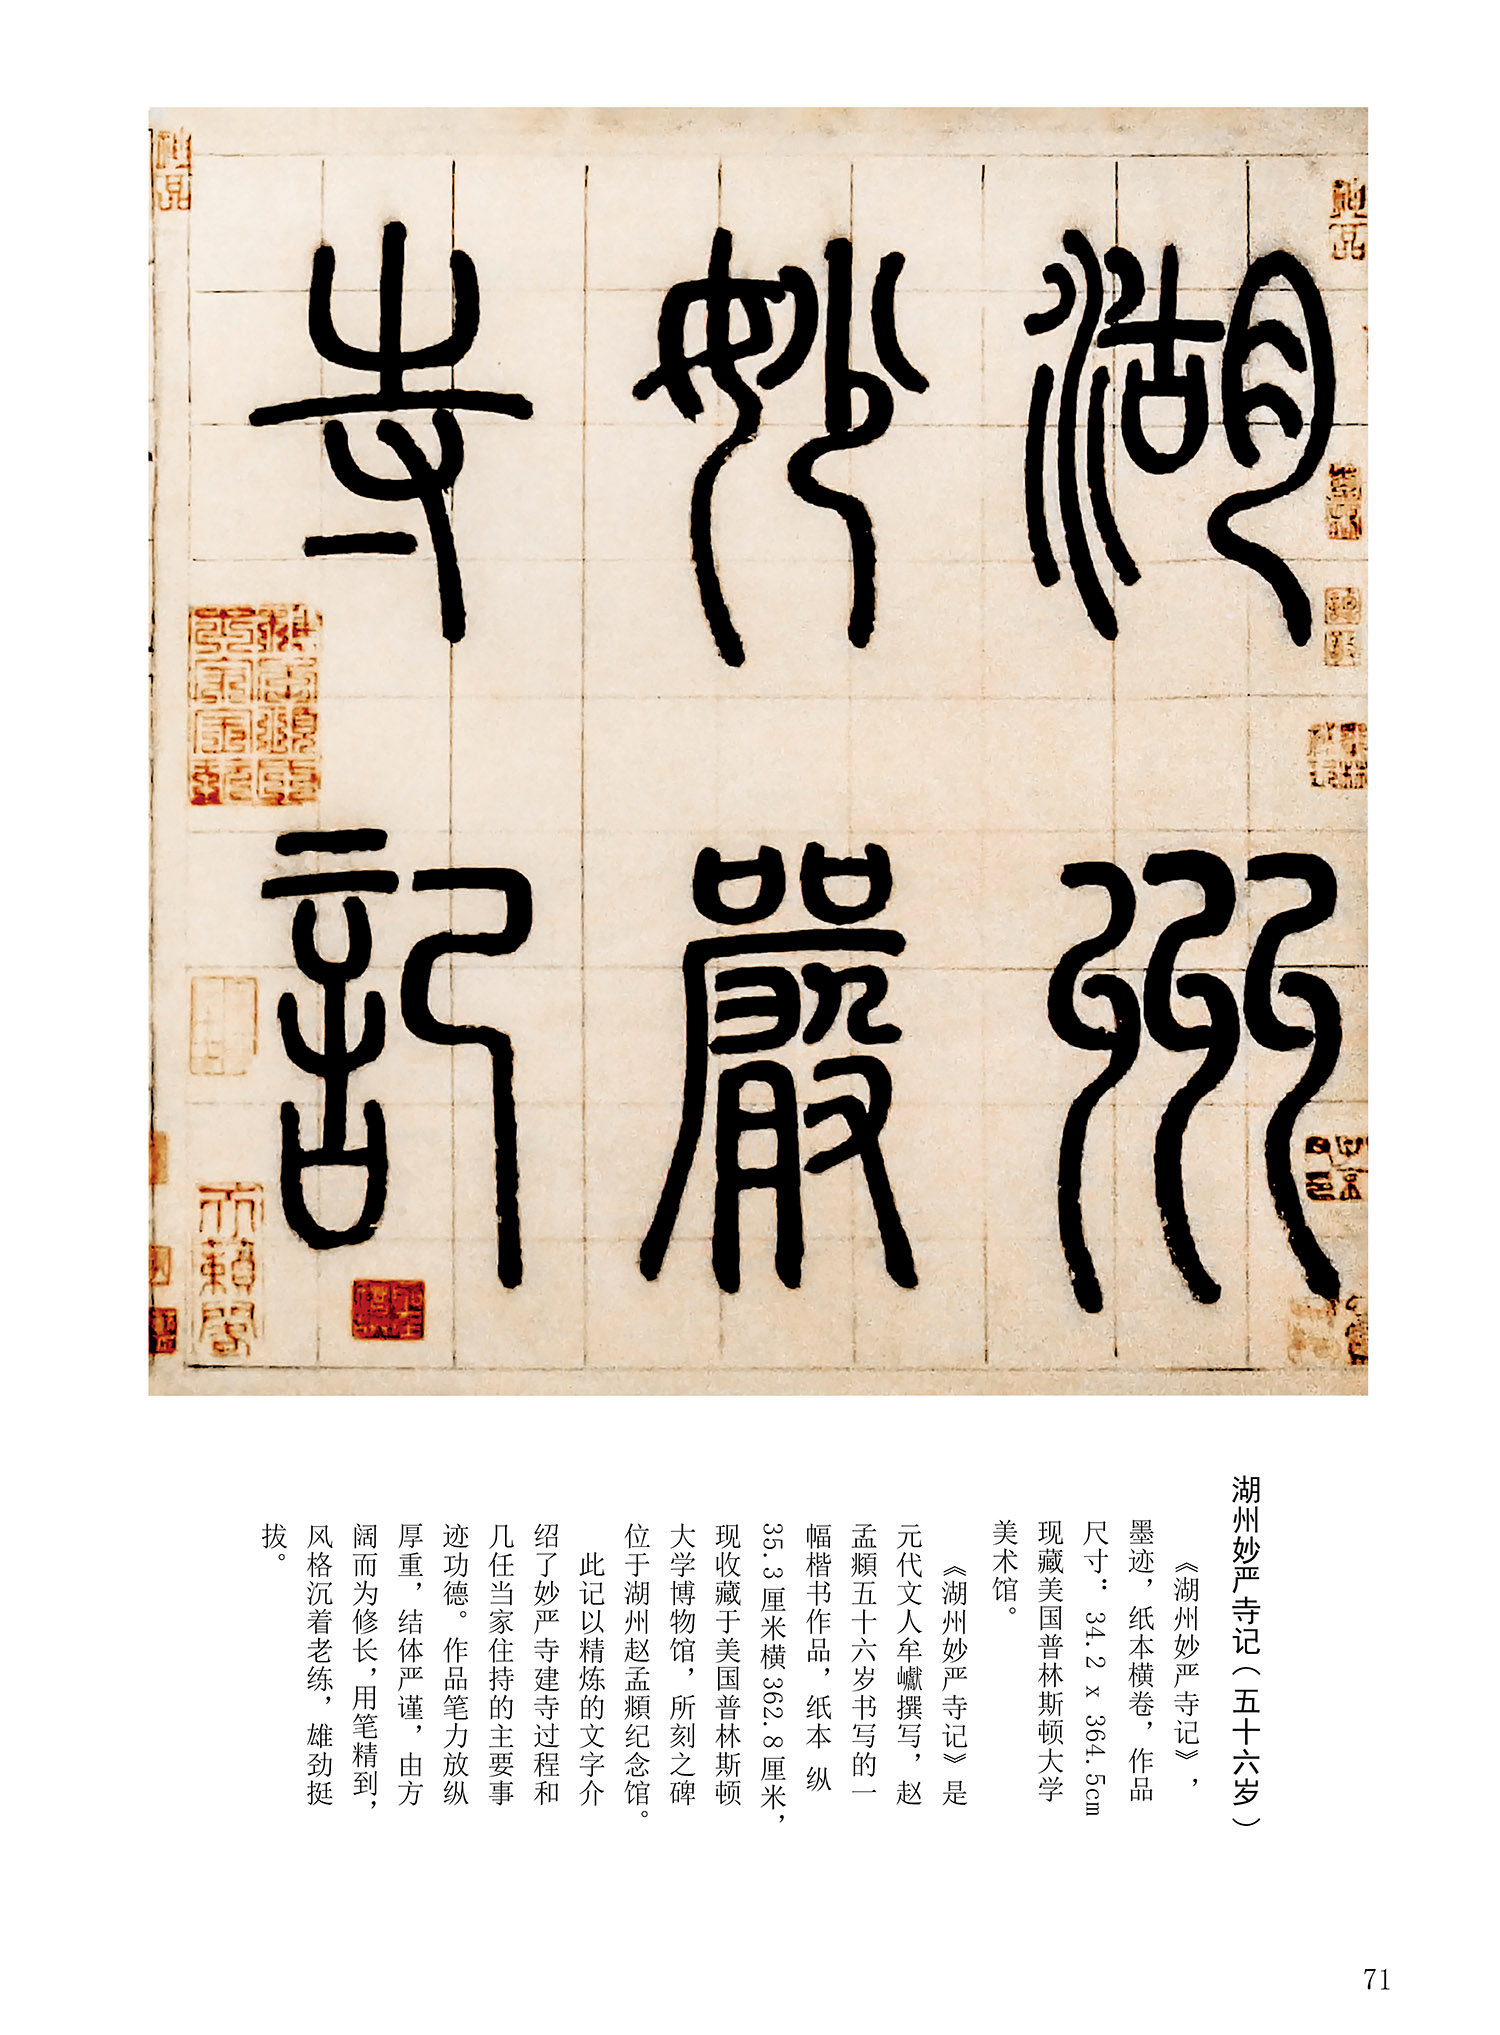 湖州
妙嚴
寺記
湖州妙严寺记（五十六岁）
《湖州妙严寺记》，
墨迹，纸本横卷，作品
尺寸：34.2 x 364.5cm
现藏美国普林斯顿大学
美术馆。
《湖州妙严寺记》是
元代文人牟巘撰写，赵
孟頫五十六岁书写的一
幅楷书作品，纸本 纵
35.3厘米横362.8厘米，
现收藏于美国普林斯顿
大学博物馆，所刻之碑
位于湖州赵孟頫纪念馆。
此记以精炼的文字介
绍了妙严寺建寺过程和
几任当家住持的主要事
迹功德。作品笔力放纵
厚重，结体严谨，由方
阔而为修长，用笔精到，
风格沉着老练，雄劲挺
拔。
71